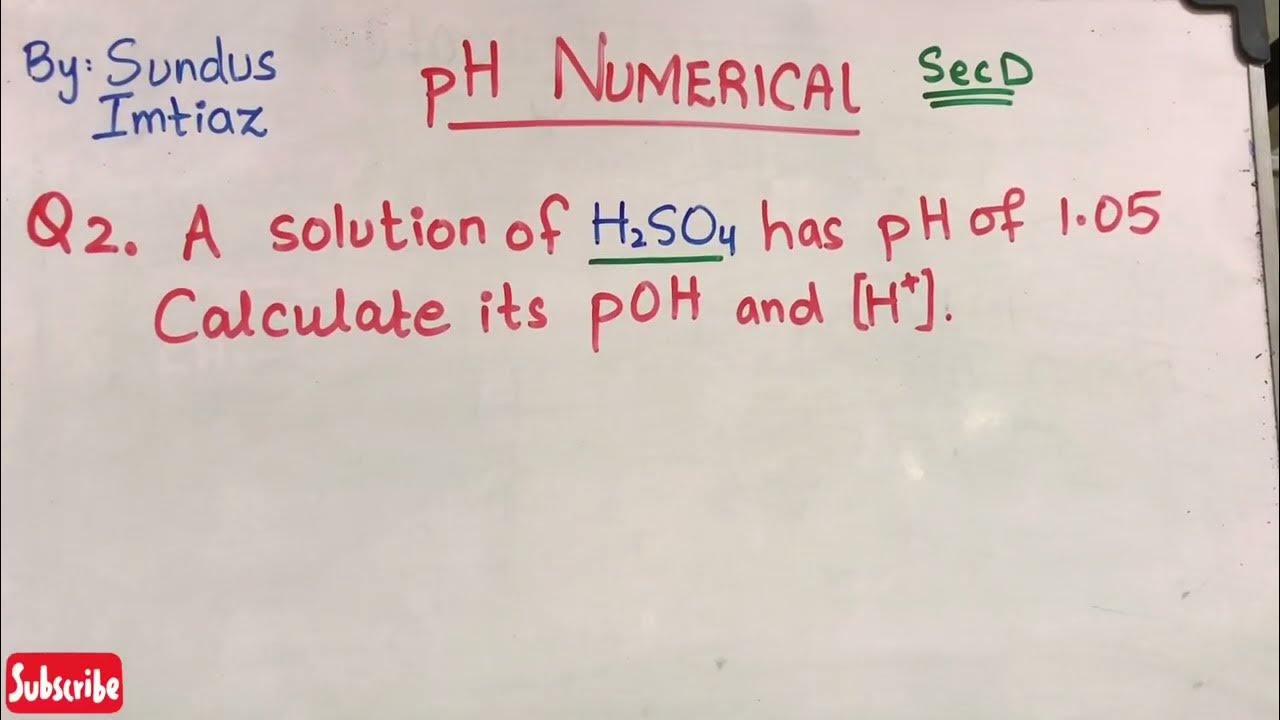 By: Sundus
Imtiaz
pH NUMERICAL
Sec D
Q2. A solution of H₂SO₄ has pH of 1.05
Calculate its pOH and [H⁺].
Subscribe